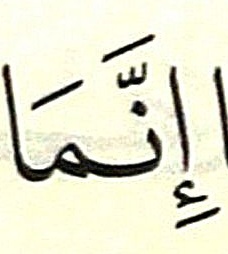 ا إِنَّمَا